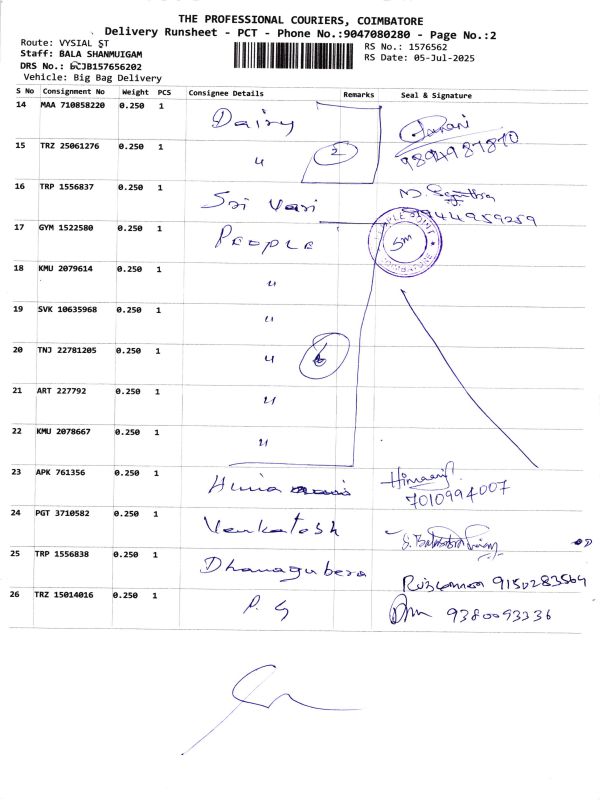 THE PROFESSIONAL COURIERS, COIMBATORE
Delivery Runsheet - PCT - Phone No.:9047080280 - Page No.:2
Route: VYSIAL ST
RS No.: 1576562
Staff: BALA SHANMUIGAM
RS Date: 05-Jul-2025
DRS No.: BCJB157656202
Vehicle: Big Bag Delivery
S No Consignment No Weight PCS Consignee Details Remarks Seal & Signature
14 MAA 710858220 0.250 1 Dairy
15 TRZ 25061276 0.250 1 〃 2 9894987870
16 TRP 1556837 0.250 1 Sri Vari 9944959259
17 GYM 1522580 0.250 1 PEOPLE PEOPLE POINT COIMBATORE
18 KMU 2079614 0.250 1 〃
19 SVK 10635968 0.250 1 〃
20 TNJ 22781205 0.250 1 〃 6
21 ART 227792 0.250 1 〃
22 KMU 2078667 0.250 1 〃
23 APK 761356 0.250 1 7010994007
24 PGT 3710582 0.250 1 Venkatesh
25 TRP 1556838 0.250 1 Dhanagubera 9150283564
26 TRZ 15014016 0.250 1 P. S 9380093336